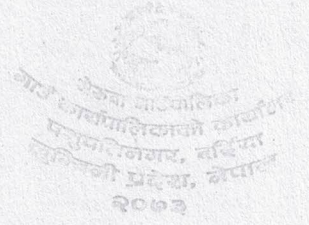 गेरुवा गाउँपालिका
गाउँ कार्यपालिकाको कार्यालय
पशुपतिनगर, बर्दिया
लुम्बिनी प्रदेश, नेपाल
२०७३